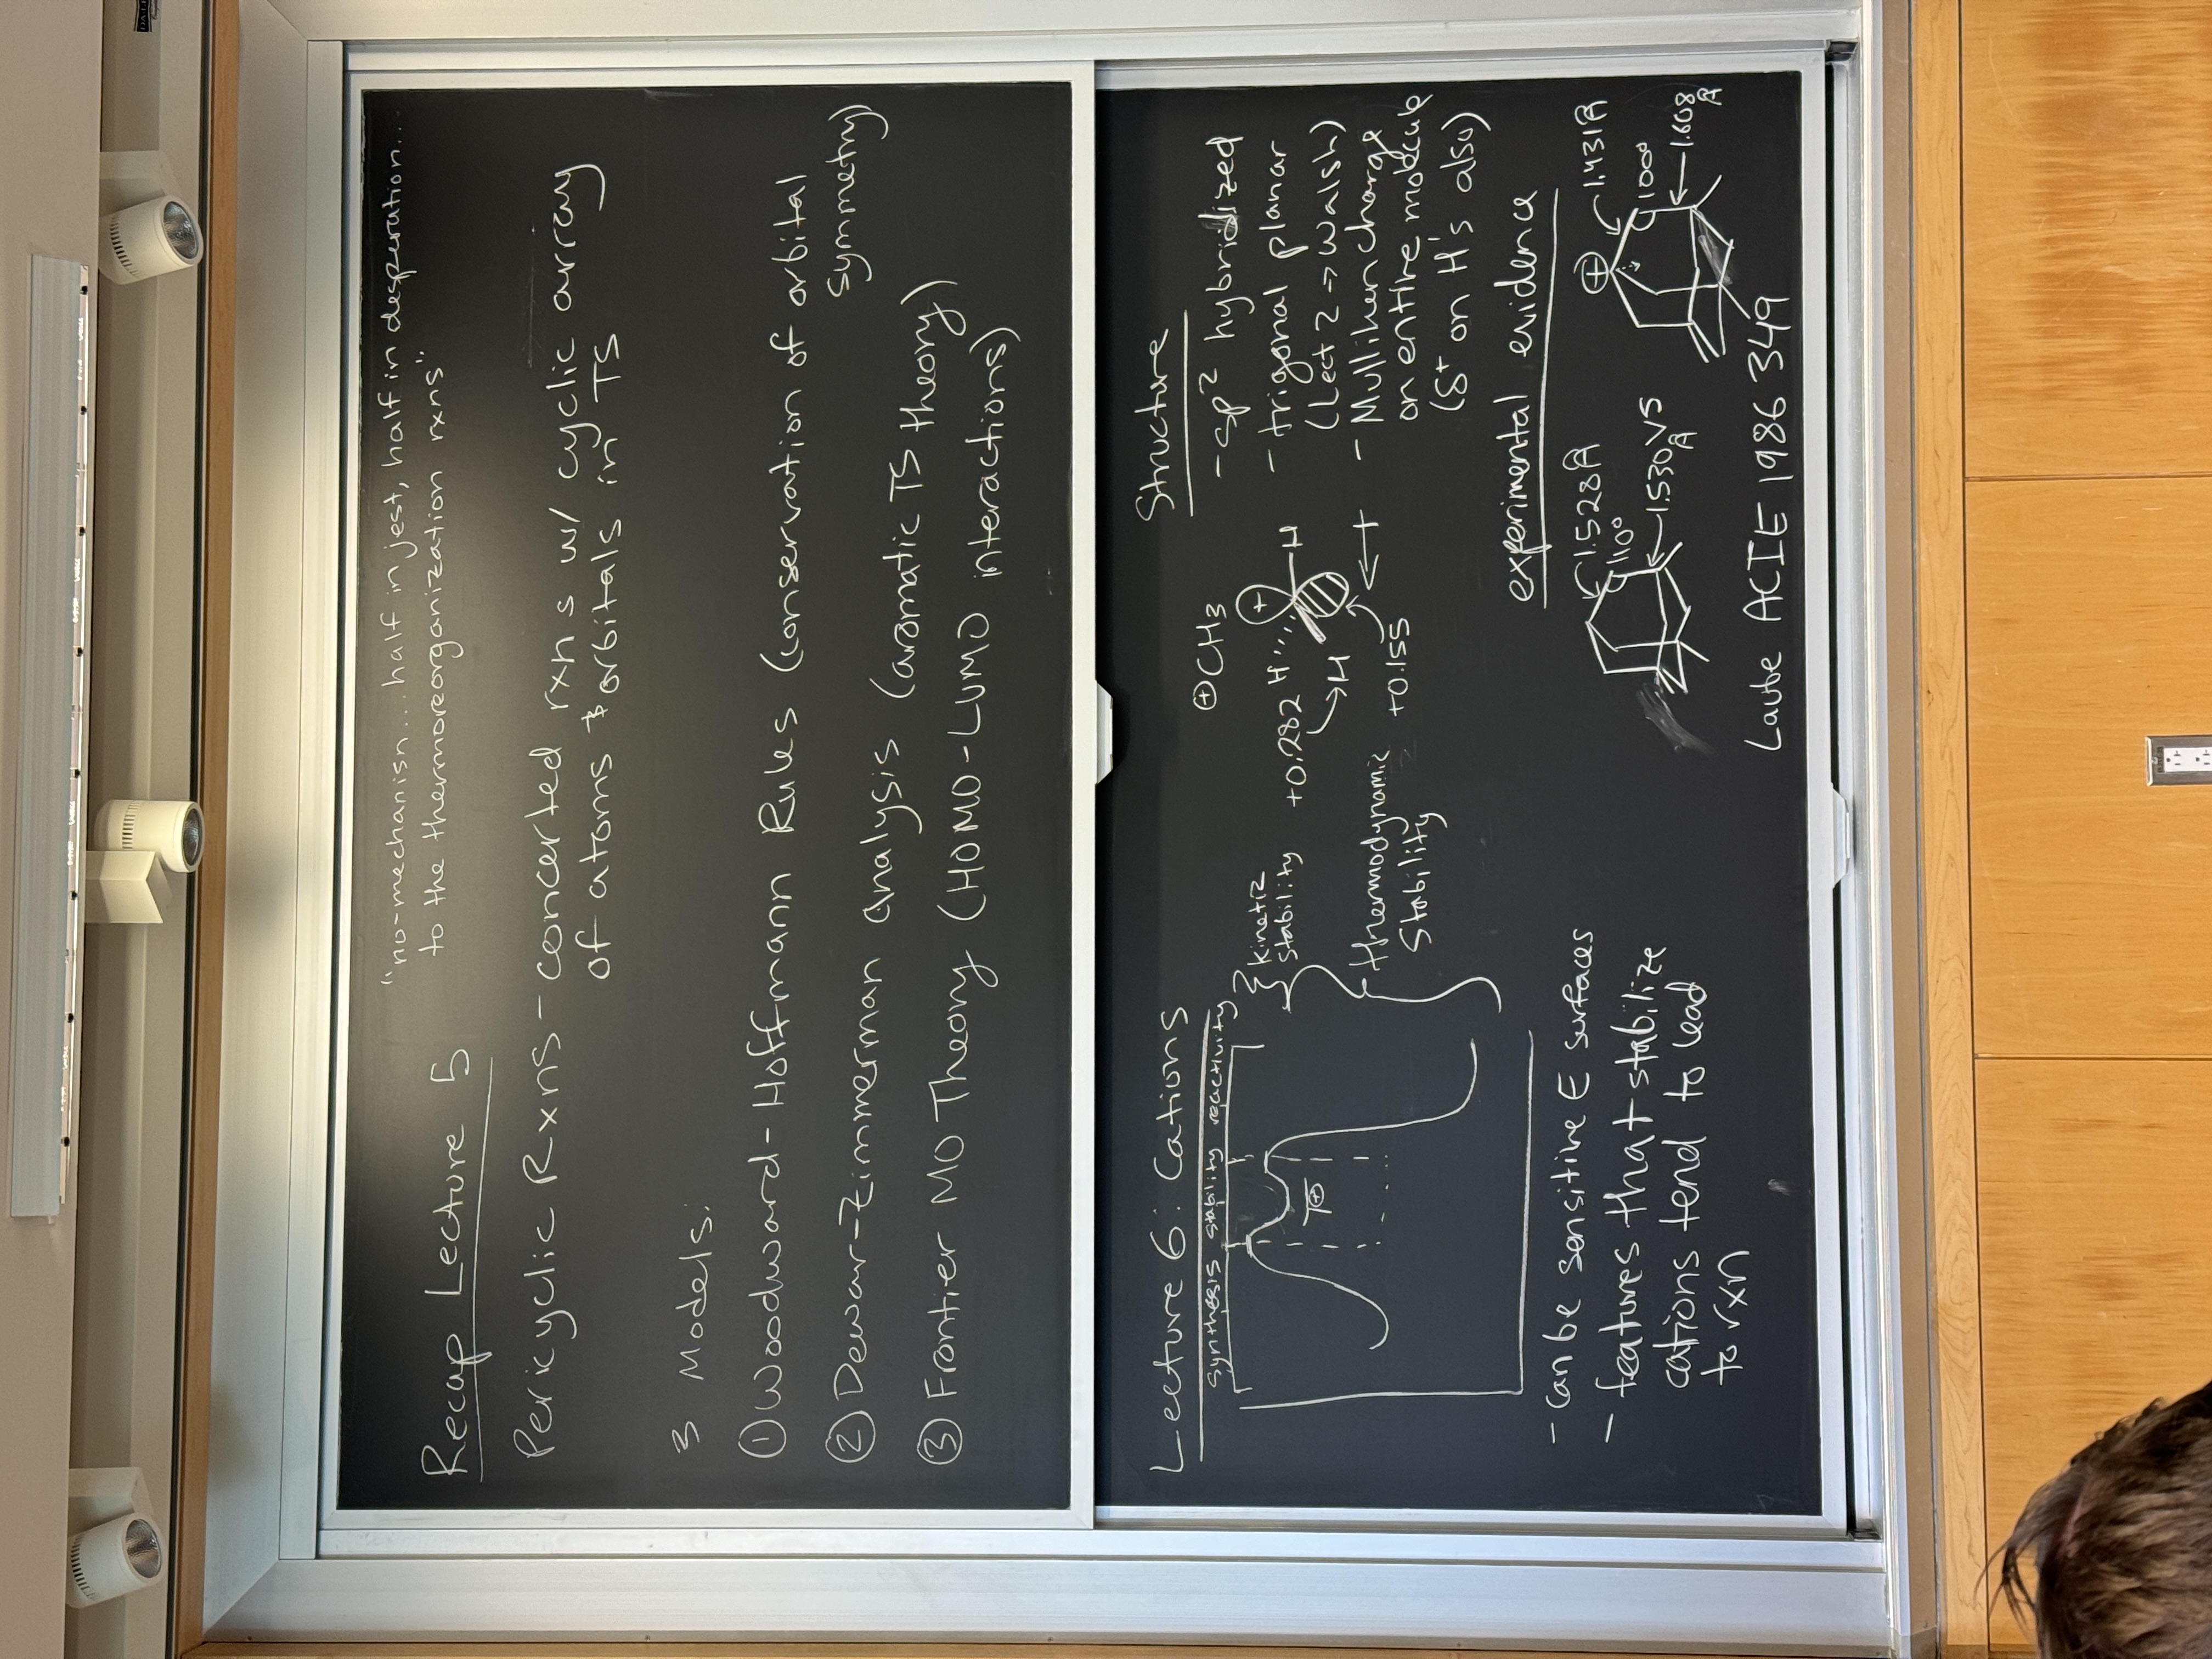 "no-mechanisn... half in jest, half in desperation...
to the thermoreorganization rxns"
Recap Lecture 5
Pericyclic Rxns - concerted rxns w/ cyclic array
of atoms & orbitals in TS
3 Models:
① Woodward-Hoffmann Rules (conservation of orbital
symmetry)
② Dewar-Zimmerman Analysis (aromatic TS theory)
③ Frontier MO Theory (HOMO-LUMO interactions)
Lecture 6: Cations
synthesis stability reactivity
kinetic
stability
thermodynamic
Stability
- can be sensitive E surfaces
- features that stabilize
cations tend to lead
to rxn
⊕CH3
+
+0.282 H H
H
+0.155
Structure
- sp² hybridized
- trigonal planar
(Lect 2 → Walsh)
- Mulliken charge
on entire molecule
(δ⁺ on H's also)
experimental evidence
1.528Å
110°
1.530 Å
VS
⊕
1.431Å
100°
1.608 Å
Laube ACIE 1986 349